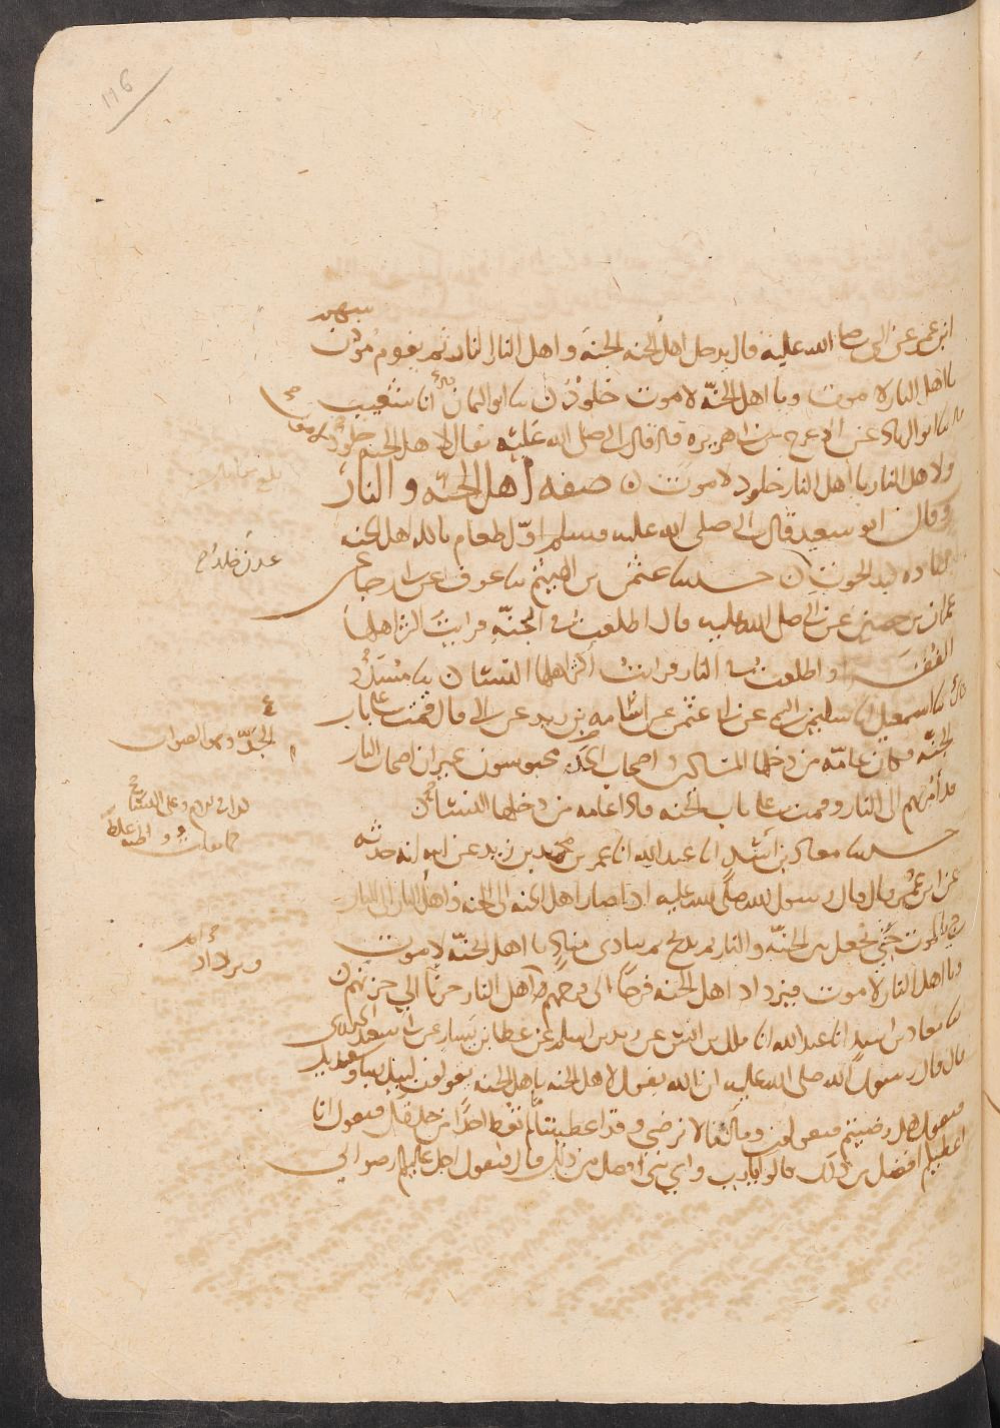 116
بينهم
ابن عمر عن النبي صلى الله عليه قال يدخل اهل الجنة الجنة واهل النار النار ثم يقوم موذن
يا اهل النار لا موت ويا اهل الجنة لا موت خلود ن نا ابو اليمان انا شعيب
نا ابو الزناد عن الاعرج عن ابي هريرة قال قال النبي صلى الله عليه يقال لاهل الجنة خلود لا موت
ولاهل النار يا اهل النار خلود لا موت ن صفة اهل الجنة والنار
وقال ابو سعيد قال النبي صلى الله عليه وسلم اول طعام ياكله اهل الجنة
زيادة كبد الحوت ن حدثنا عثمن بن الهيثم نا عوف عن ابي رجا عن
عمران بن حصين عن النبي صلى الله عليه قال اطلعت في الجنة فرايت اكثر اهلها
الفقراء واطلعت في النار فرايت اكثر اهلها النساء ن نا مسدد
نا اسمعيل انا سليمن التيمي عن ابي عثمن عن اسامة بن زيد عن النبي قال قمت على باب
الجنة فكان عامة من دخلها المساكين واصحاب الجد محبوسون غير ان اصحاب النار
قد امر بهم الى النار وقمت على باب الجنة فاذا عامة من دخلها النساء ن
حدثنا معاذ بن اسد انا عبد الله انا عمر بن محمد بن زيد عن ابيه انه حدثه
عن ابن عمر قال قال رسول الله صلى الله عليه اذا صار اهل الجنة الى الجنة واهل النار الى النار
جي بالموت حتى يجعل بين الجنة والنار ثم يذبح ثم ينادي مناد يا اهل الجنة لا موت
ويا اهل النار لا موت فيزداد اهل الجنة فرحا الى فرحهم واهل النار حزنا الى حزنهم ن
نا معاذ بن اسد انا عبد الله انا ملك بن انس عن زيد بن اسلم عن عطا بن يسار عن ابي سعيد الخدري
قال قال رسول الله صلى الله عليه ان الله يقول لاهل الجنة يا اهل الجنة يقولون لبيك ربنا وسعديك
فيقول هل رضيتم فيقولون وما لنا لا نرضى وقد اعطيتنا ما لم تعط احدا من خلقك فيقول انا
اعطيكم افضل من ذلك قالوا يا رب واي شي افضل من ذلك قال فيقول احل عليكم رضواني
عدن خلد
الجنة وهو الصواب
ويزداد